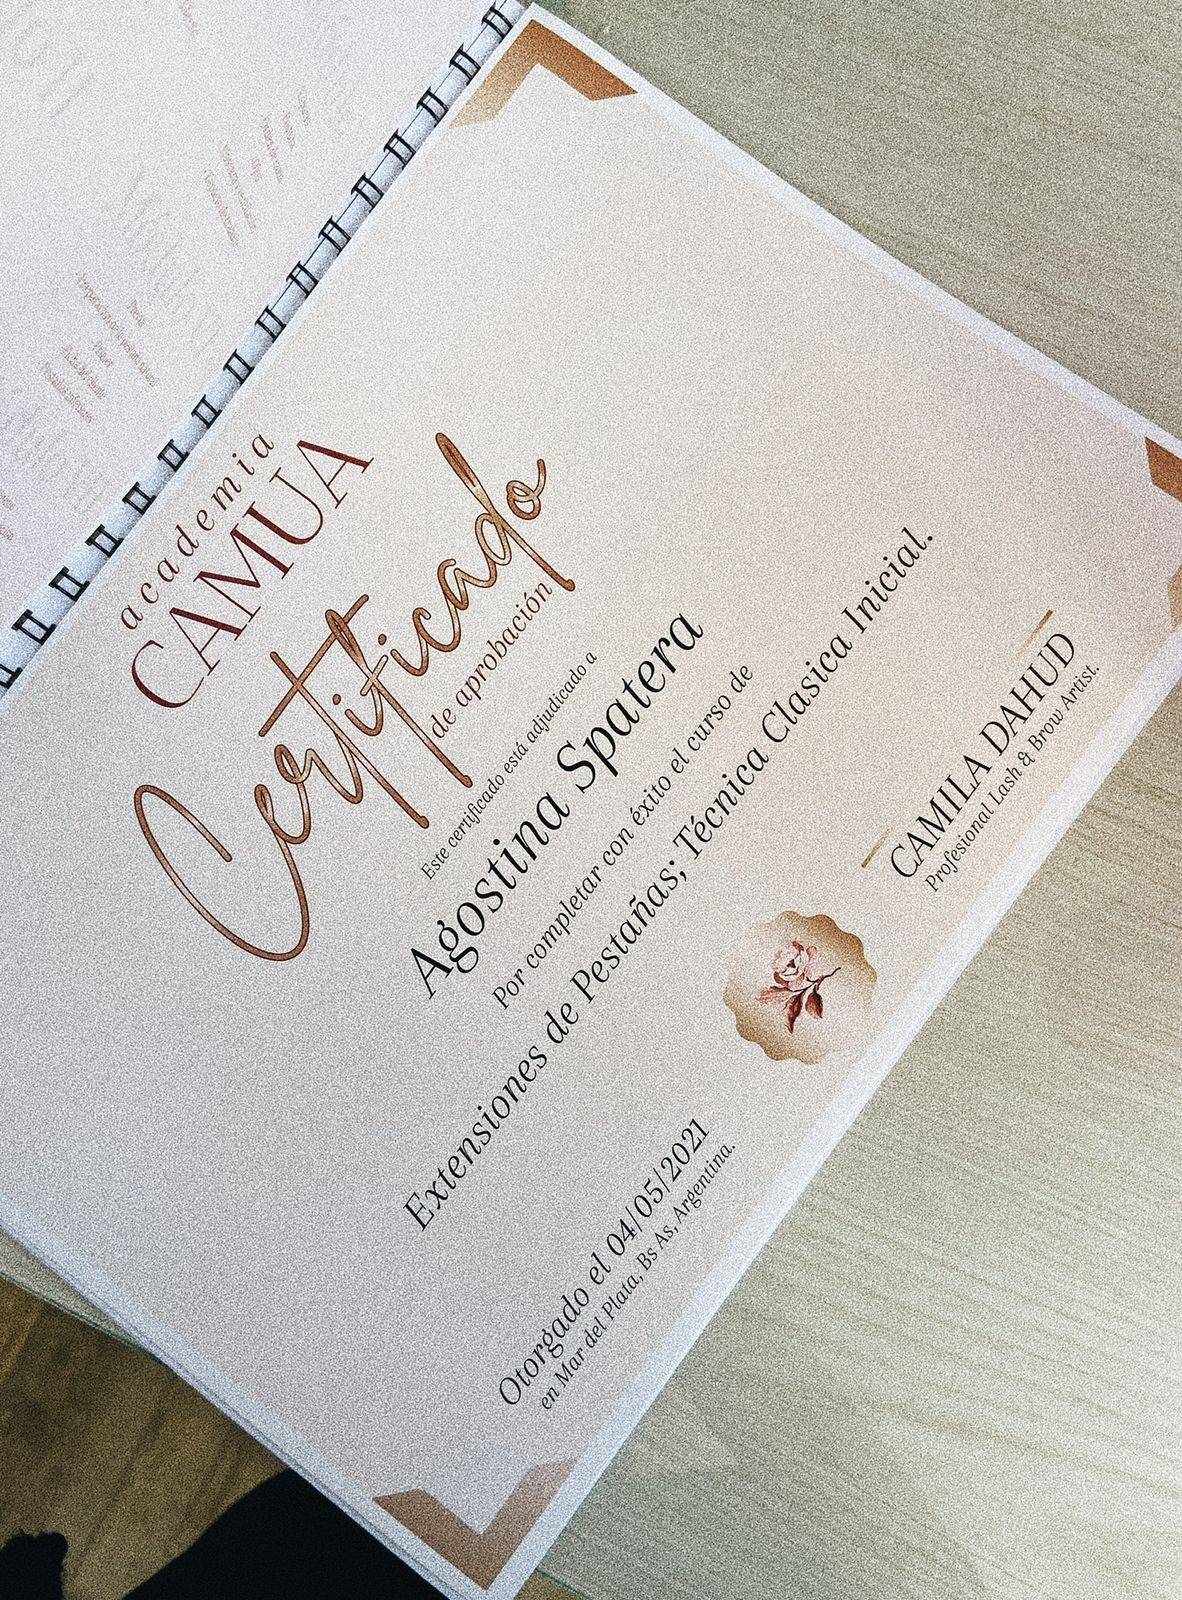 academia
CAMUA
Certificado
de aprobación
Este certificado está adjudicado a
Agostina Spatera
Por completar con éxito el curso de
Extensiones de Pestañas; Técnica Clasica Inicial.
Otorgado el 04/05/2021
en Mar del Plata, Bs As, Argentina.
CAMILA DAHUD
Profesional Lash & Brow Artist.